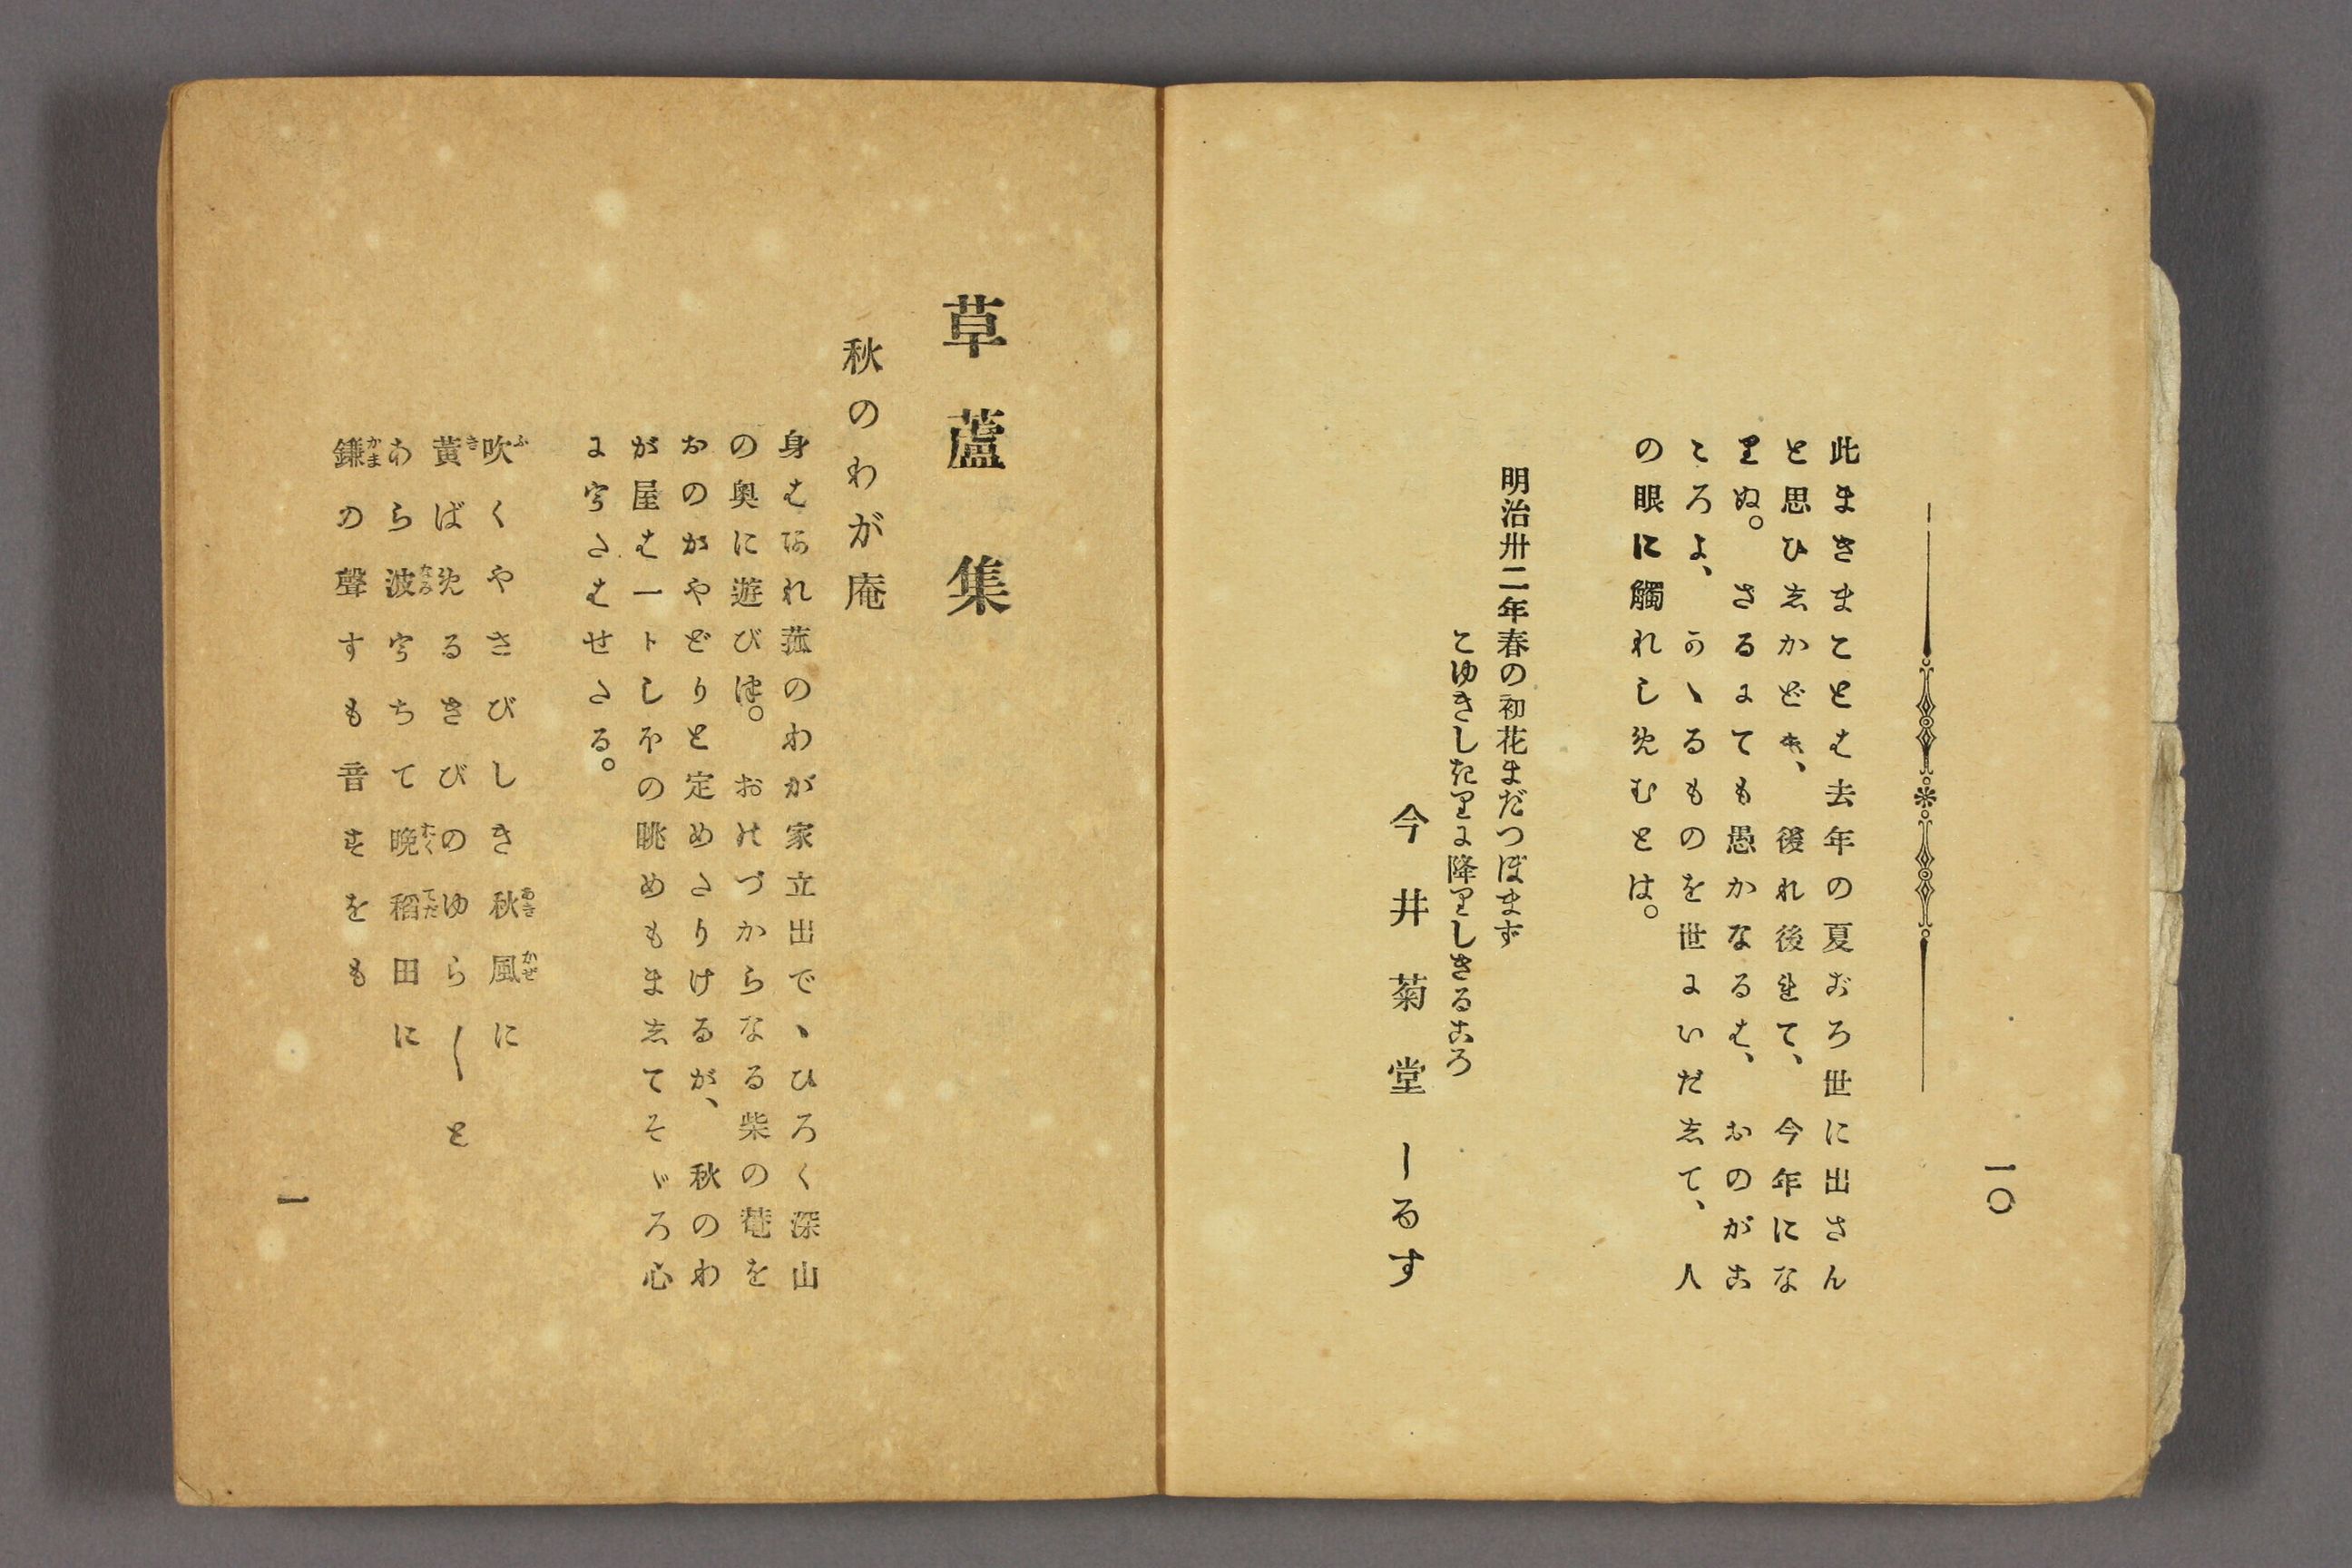 一〇
此まきまことは去年の夏ごろ世に出さん
と思ひしかども、後れ後れて、今年にな
りぬ。さるにても愚かなるは、おのがこ
ころよ、かゝるものを世にいだして、人
の眼に觸れしめむとは。
明治卅二年春の初花まだつぼまず
こゆきしきりに降りしきるころ
今井菊堂しるす
草蘆集
秋のわが庵
身はあれ菰のわが家立出でゝひろく深山
の奧に遊びつ。おのづからなる柴の菴を
おのがやどりと定めたりけるが、秋のわ
が屋は一トしほの眺めもましてそゞろ心
にうたはせたる。
吹くやさびしき秋風に
黄ばめるきびのゆら〳〵と
あら波うちて晩稻田に
鎌の聲すも音すをも
一